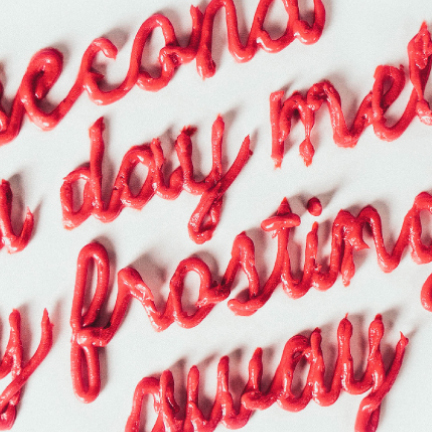 econd
day mel
y frostin
away